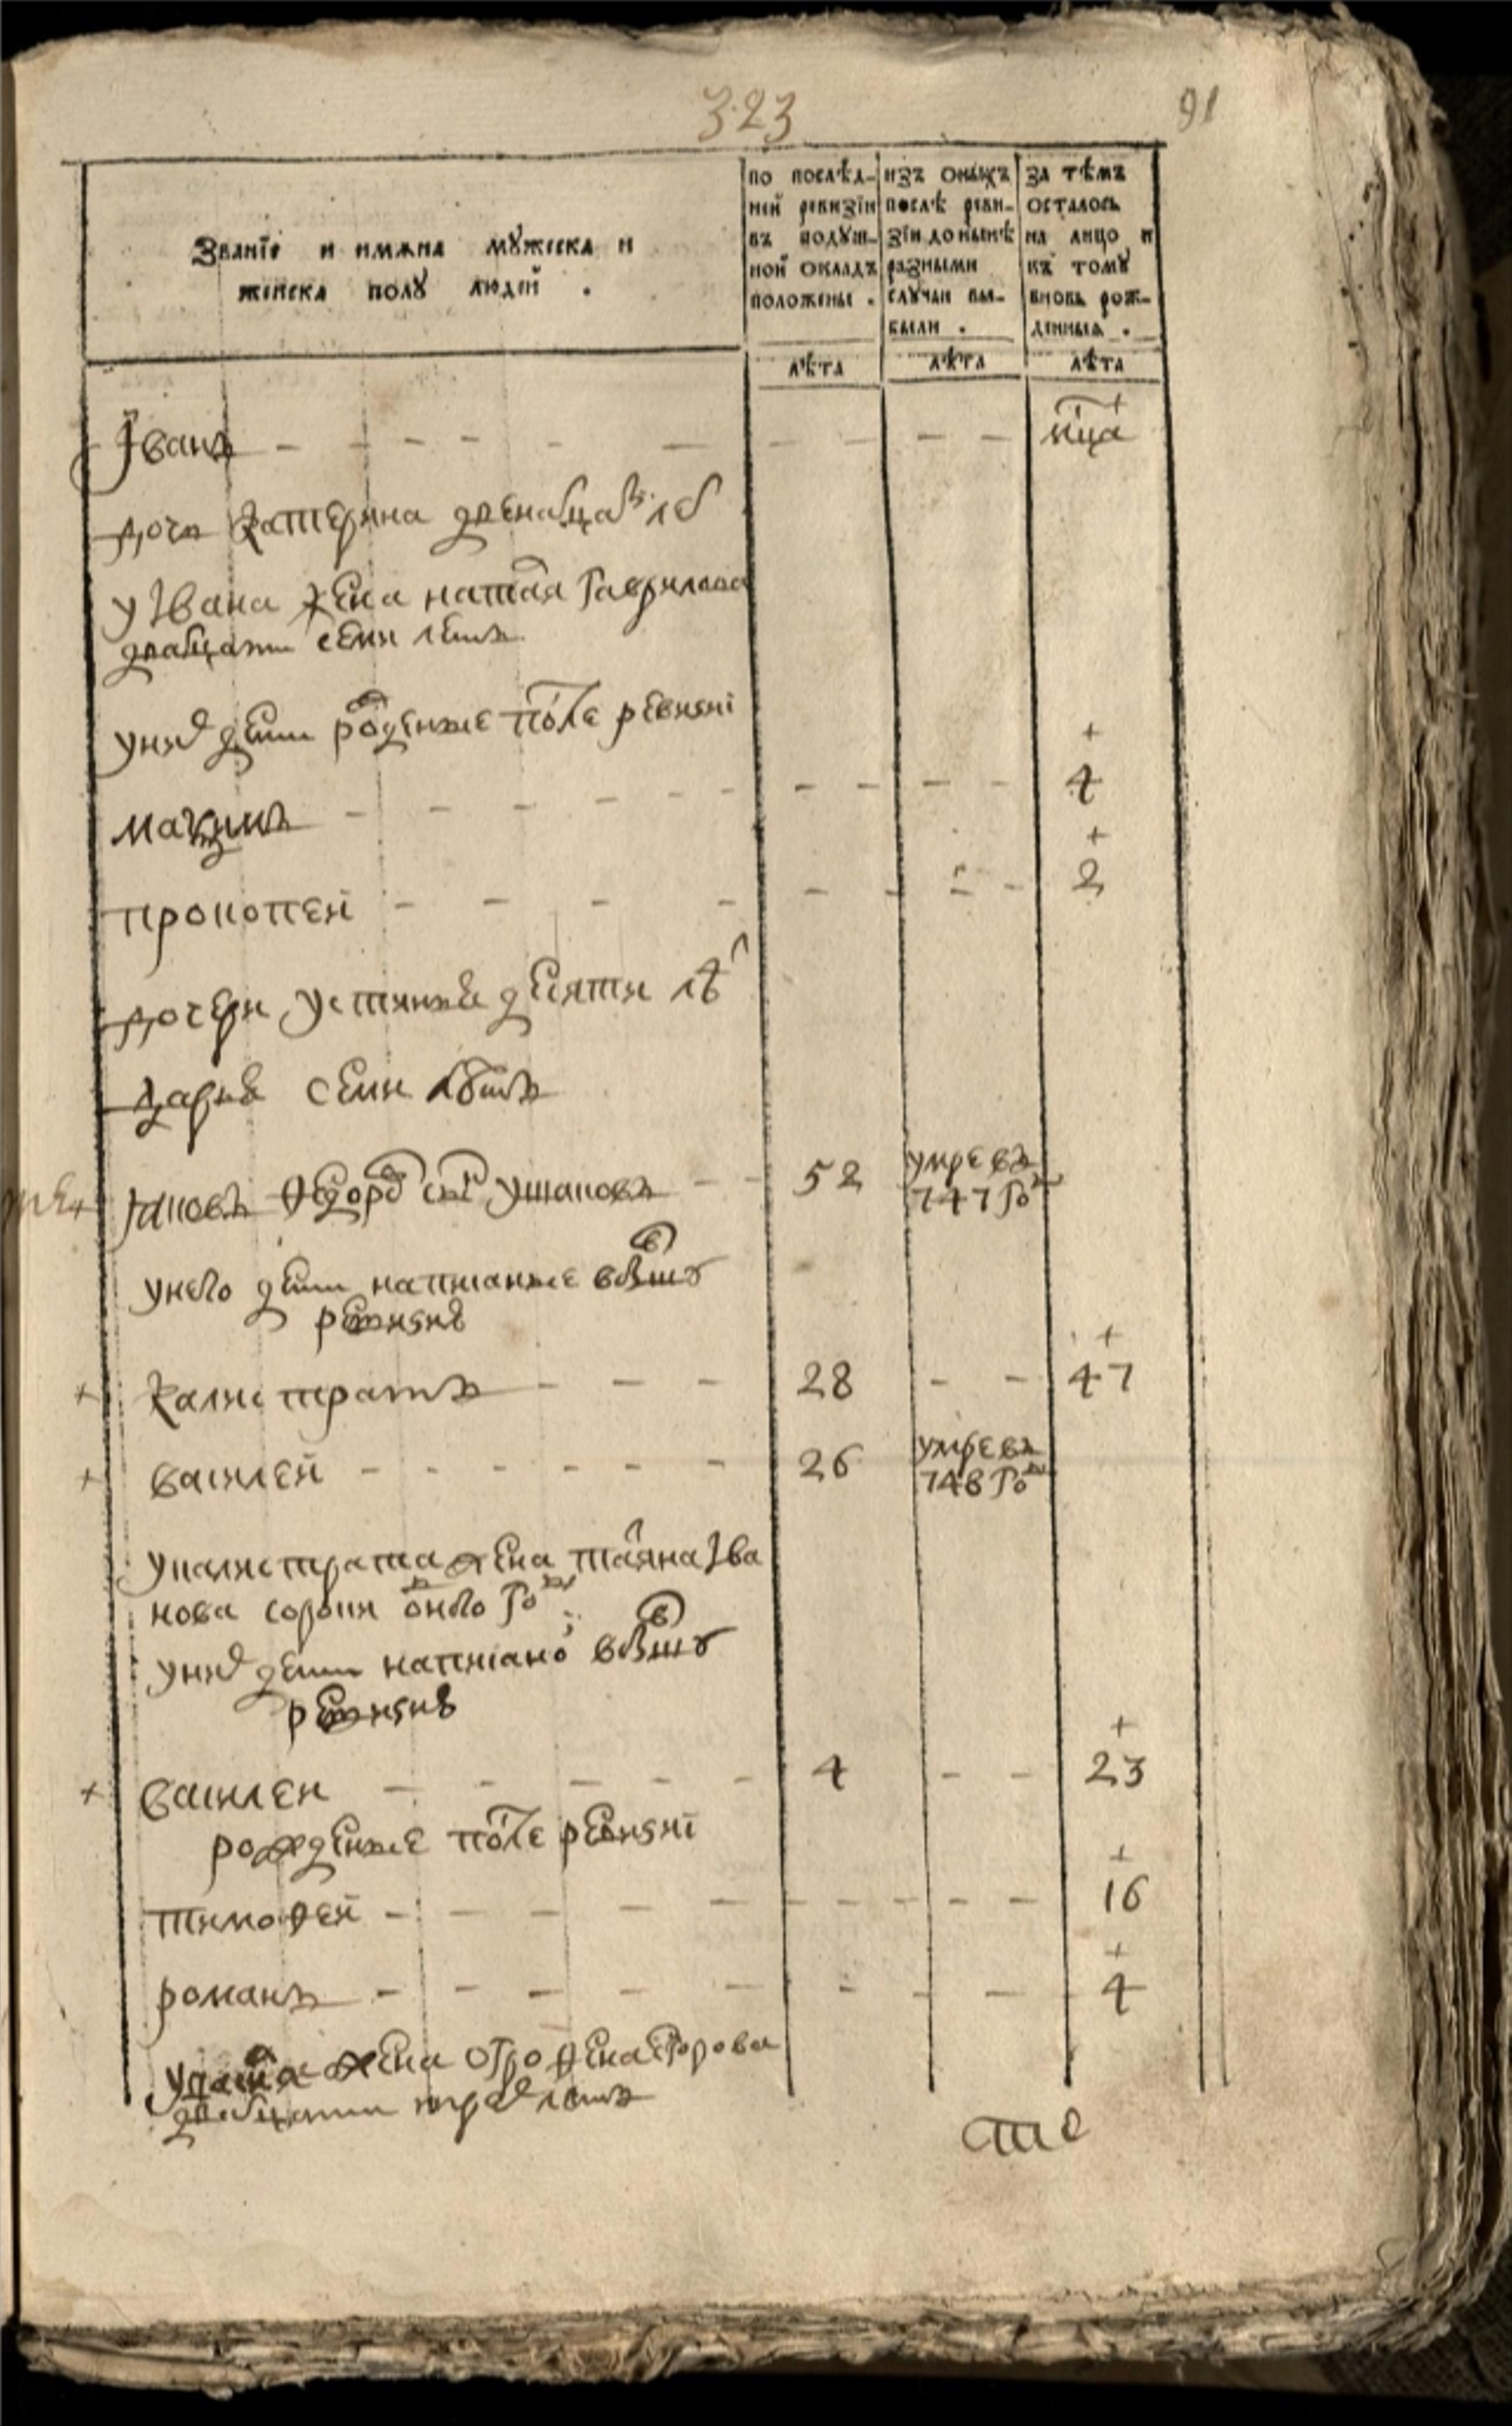 323
91
Званїе и имѧна мꙋжеска и
женска полꙋ людей .
по послѣд-
ней ревизїи
въ подꙋш-
ной окладъ
положены .
изъ оныхъ
послѣ реви-
зїи до нынѣ
разными
слꙋчаи вы-
были .
за тѣмъ
осталось
на лицо и
къ томꙋ
вновь рож-
денныѧ .
лѣта
лѣта
лѣта
Іванъ - - - - - - - - - - мца
дочь катерина двенатцат лѣт
у Івана жена наталя гаврилова
дватцати семи летъ
у них дети роденые после ревизиі
+
максимъ - - - - - - - - - - 4
+
прокопей - - - - - - - - 2
дочери устинья десяти лѣт
дарья семи лѣтъ
яковъ Ѳедоров сн ушаковъ - - 52 умре въ
747 го
у него дети написаные в бывшую
ревизию
+
+ калистратъ - - - 28 - - 47
+ василей - - - - - - 26 умре въ
748 го
у калистрата жена татяна Іва
нова сороки одного го
у них дети написано в бывшую
ревизию
+
+ василеи - - - - - 4 - - 23
рожденые после ревизиі
+
тимоѳей - - - - - - - - - - 16
+
романъ - - - - - - - - 4
жена егорова
дватцати трех летъ